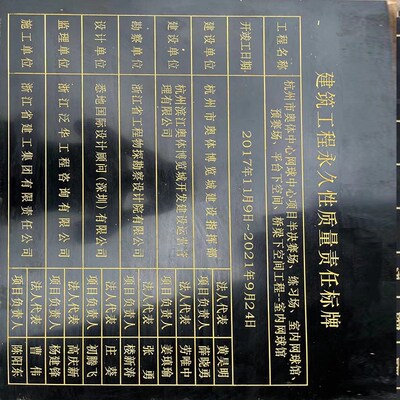 建筑工程永久性质量责任标牌
工程名称 杭州市奥体中心网球中心项目半决赛场、练习场、室内网球馆、
预赛场、平台下空间、桥梁下空间工程--室内网球馆
开竣工日期 2017年11月9日~2021年9月24日
建设单位 杭州市奥体博览城建设指挥部 法人代表 黄昊明
项目负责人 薛晓勇
建设单位 杭州滨江奥体博览城开发建设运营管
理有限公司 法人代表 劳唯中
项目负责人 姜瑱瑜
勘察单位 浙江省工程物探勘察设计院有限公司 法人代表 张勇
项目负责人 楼新涛
设计单位 悉地国际设计顾问(深圳)有限公司 法人代表 庄葵
项目负责人 初腾飞
监理单位 浙江泛华工程咨询有限公司 法人代表 高庆新
项目负责人 杨建锋
施工单位 浙江省建工集团有限责任公司 法人代表 曹伟
项目负责人 陈阳东